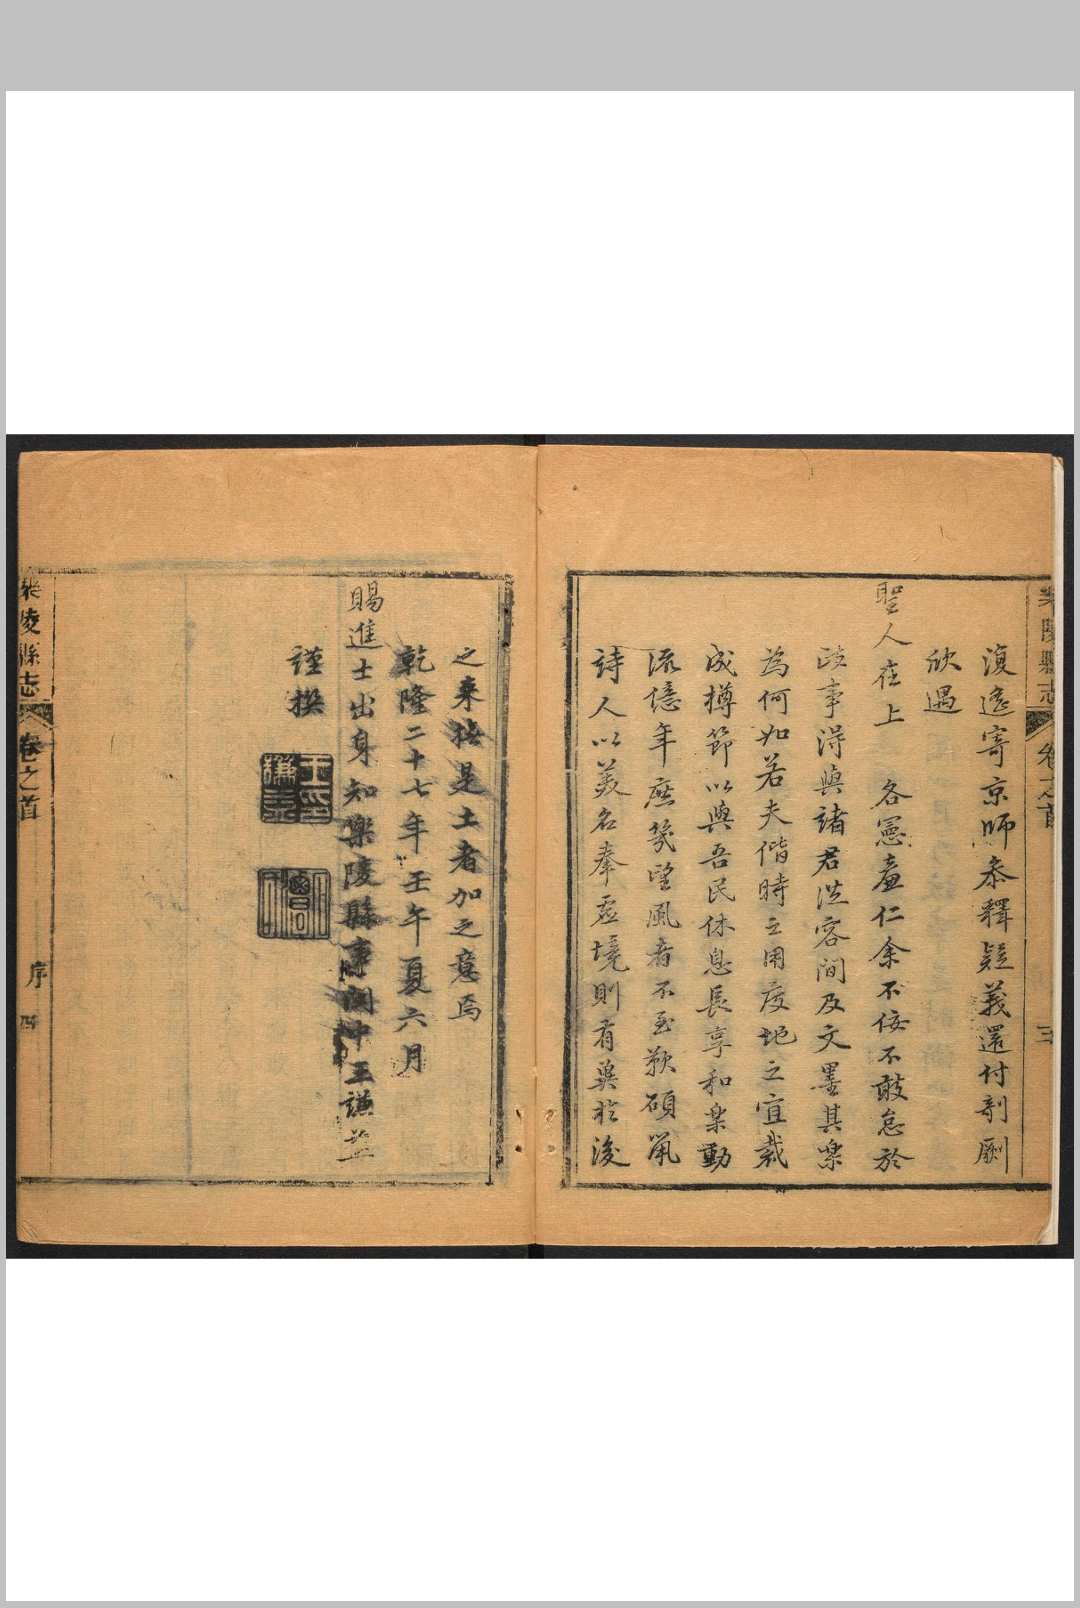 樂陵縣志 卷之首
復遙寄京師叅釋疑義還付剞劂
欣遇
聖人在上 各憲龕仁余不佞不敢怠於
政事得與諸君從容間及文墨其樂
為何如若夫偕時之用度地之宜裁
成樽節以與吾民休息長享和樂動
流億年庶幾望風者不至歎碩鼠
詩人以美名奉虛境則有冀於後
之來按是土者加之意焉
乾隆二十七年壬午夏六月
賜進士出身知樂陵縣事閩中王謙益
謹撰
樂陵縣志 卷之首 序 四